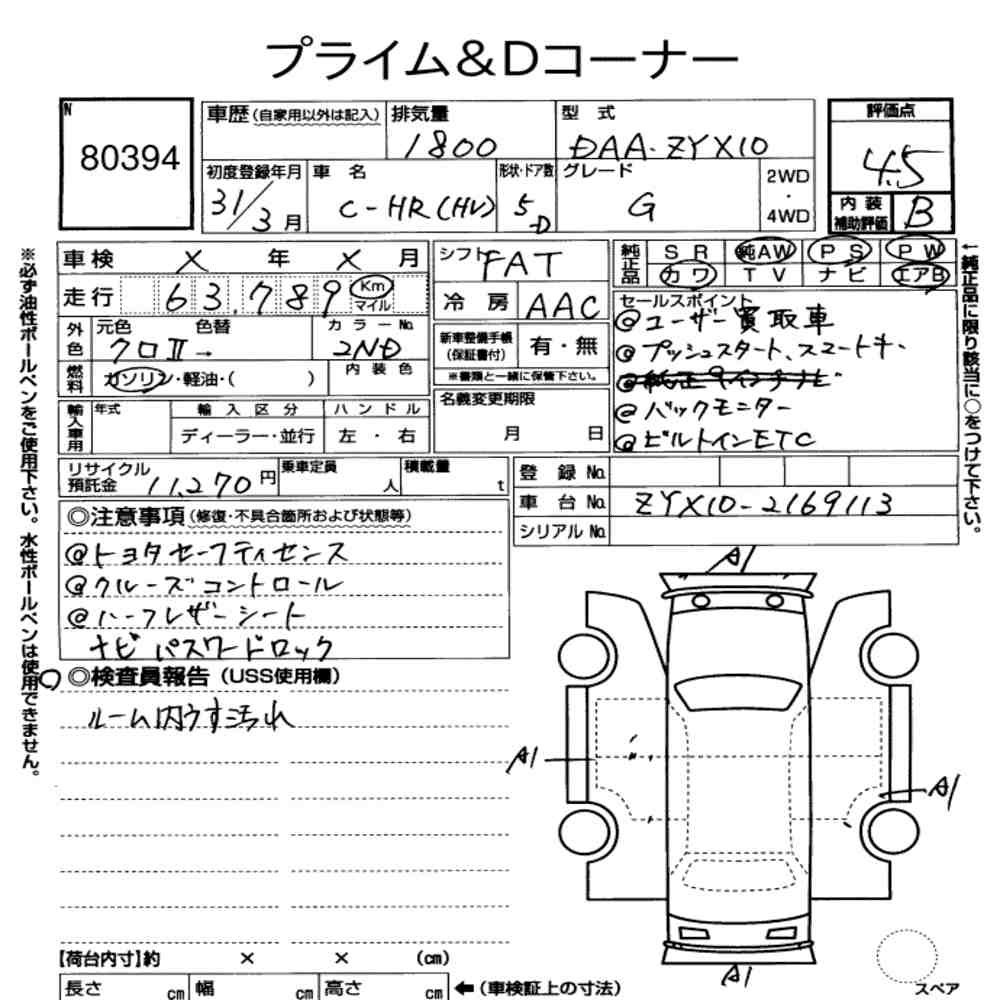 プライム&Dコーナー
N
80394
車歴(自家用以外は記入)
排気量
1800
型式
DAA-ZYX10
評価点
4.5
初度登録年月
31/3月
車名
C-HR(HV)
形状・ドア数
5D
グレード
G
2WD
・
4WD
内装
補助評価
B
車検 X 年 X 月
走行 63,789 Km
マイル
シフト
FAT
冷房 AAC
純正品
SR 純AW PS PW
カワ TV ナビ エアB
外色
元色 色替
クロⅡ→
カラーNo.
2ND
新車整備手帳
(保証書付)
有・無
※書類と一緒に保管下さい。
燃料
ガソリン・軽油・( )
内装色
セールスポイント
@ユーザー買取車
@プッシュスタート、スマートキー
@純正9インチナビ
@バックモニター
@ビルトインETC
輸入車用
年式
輸入区分
ディーラー・並行
ハンドル
左・右
名義変更期限
月 日
リサイクル
預託金
11,270円
乗車定員
人
積載量
t
登録No.
車台No. ZYX10-2169113
シリアルNo.
◎注意事項(修復・不具合箇所および状態等)
@トヨタセーフティセンス
@クルーズコントロール
@ハーフレザーシート
ナビパスワードロック
◎検査員報告(USS使用欄)
ルーム内うす汚れ
A1
A1
A1
A1
【荷台内寸】約 × × (cm)
長さ cm 幅 cm 高さ cm ←(車検証上の寸法)
スペア
※必ず油性ボールペンをご使用下さい。水性ボールペンは使用できません。
↑純正品に限り該当に○をつけて下さい。